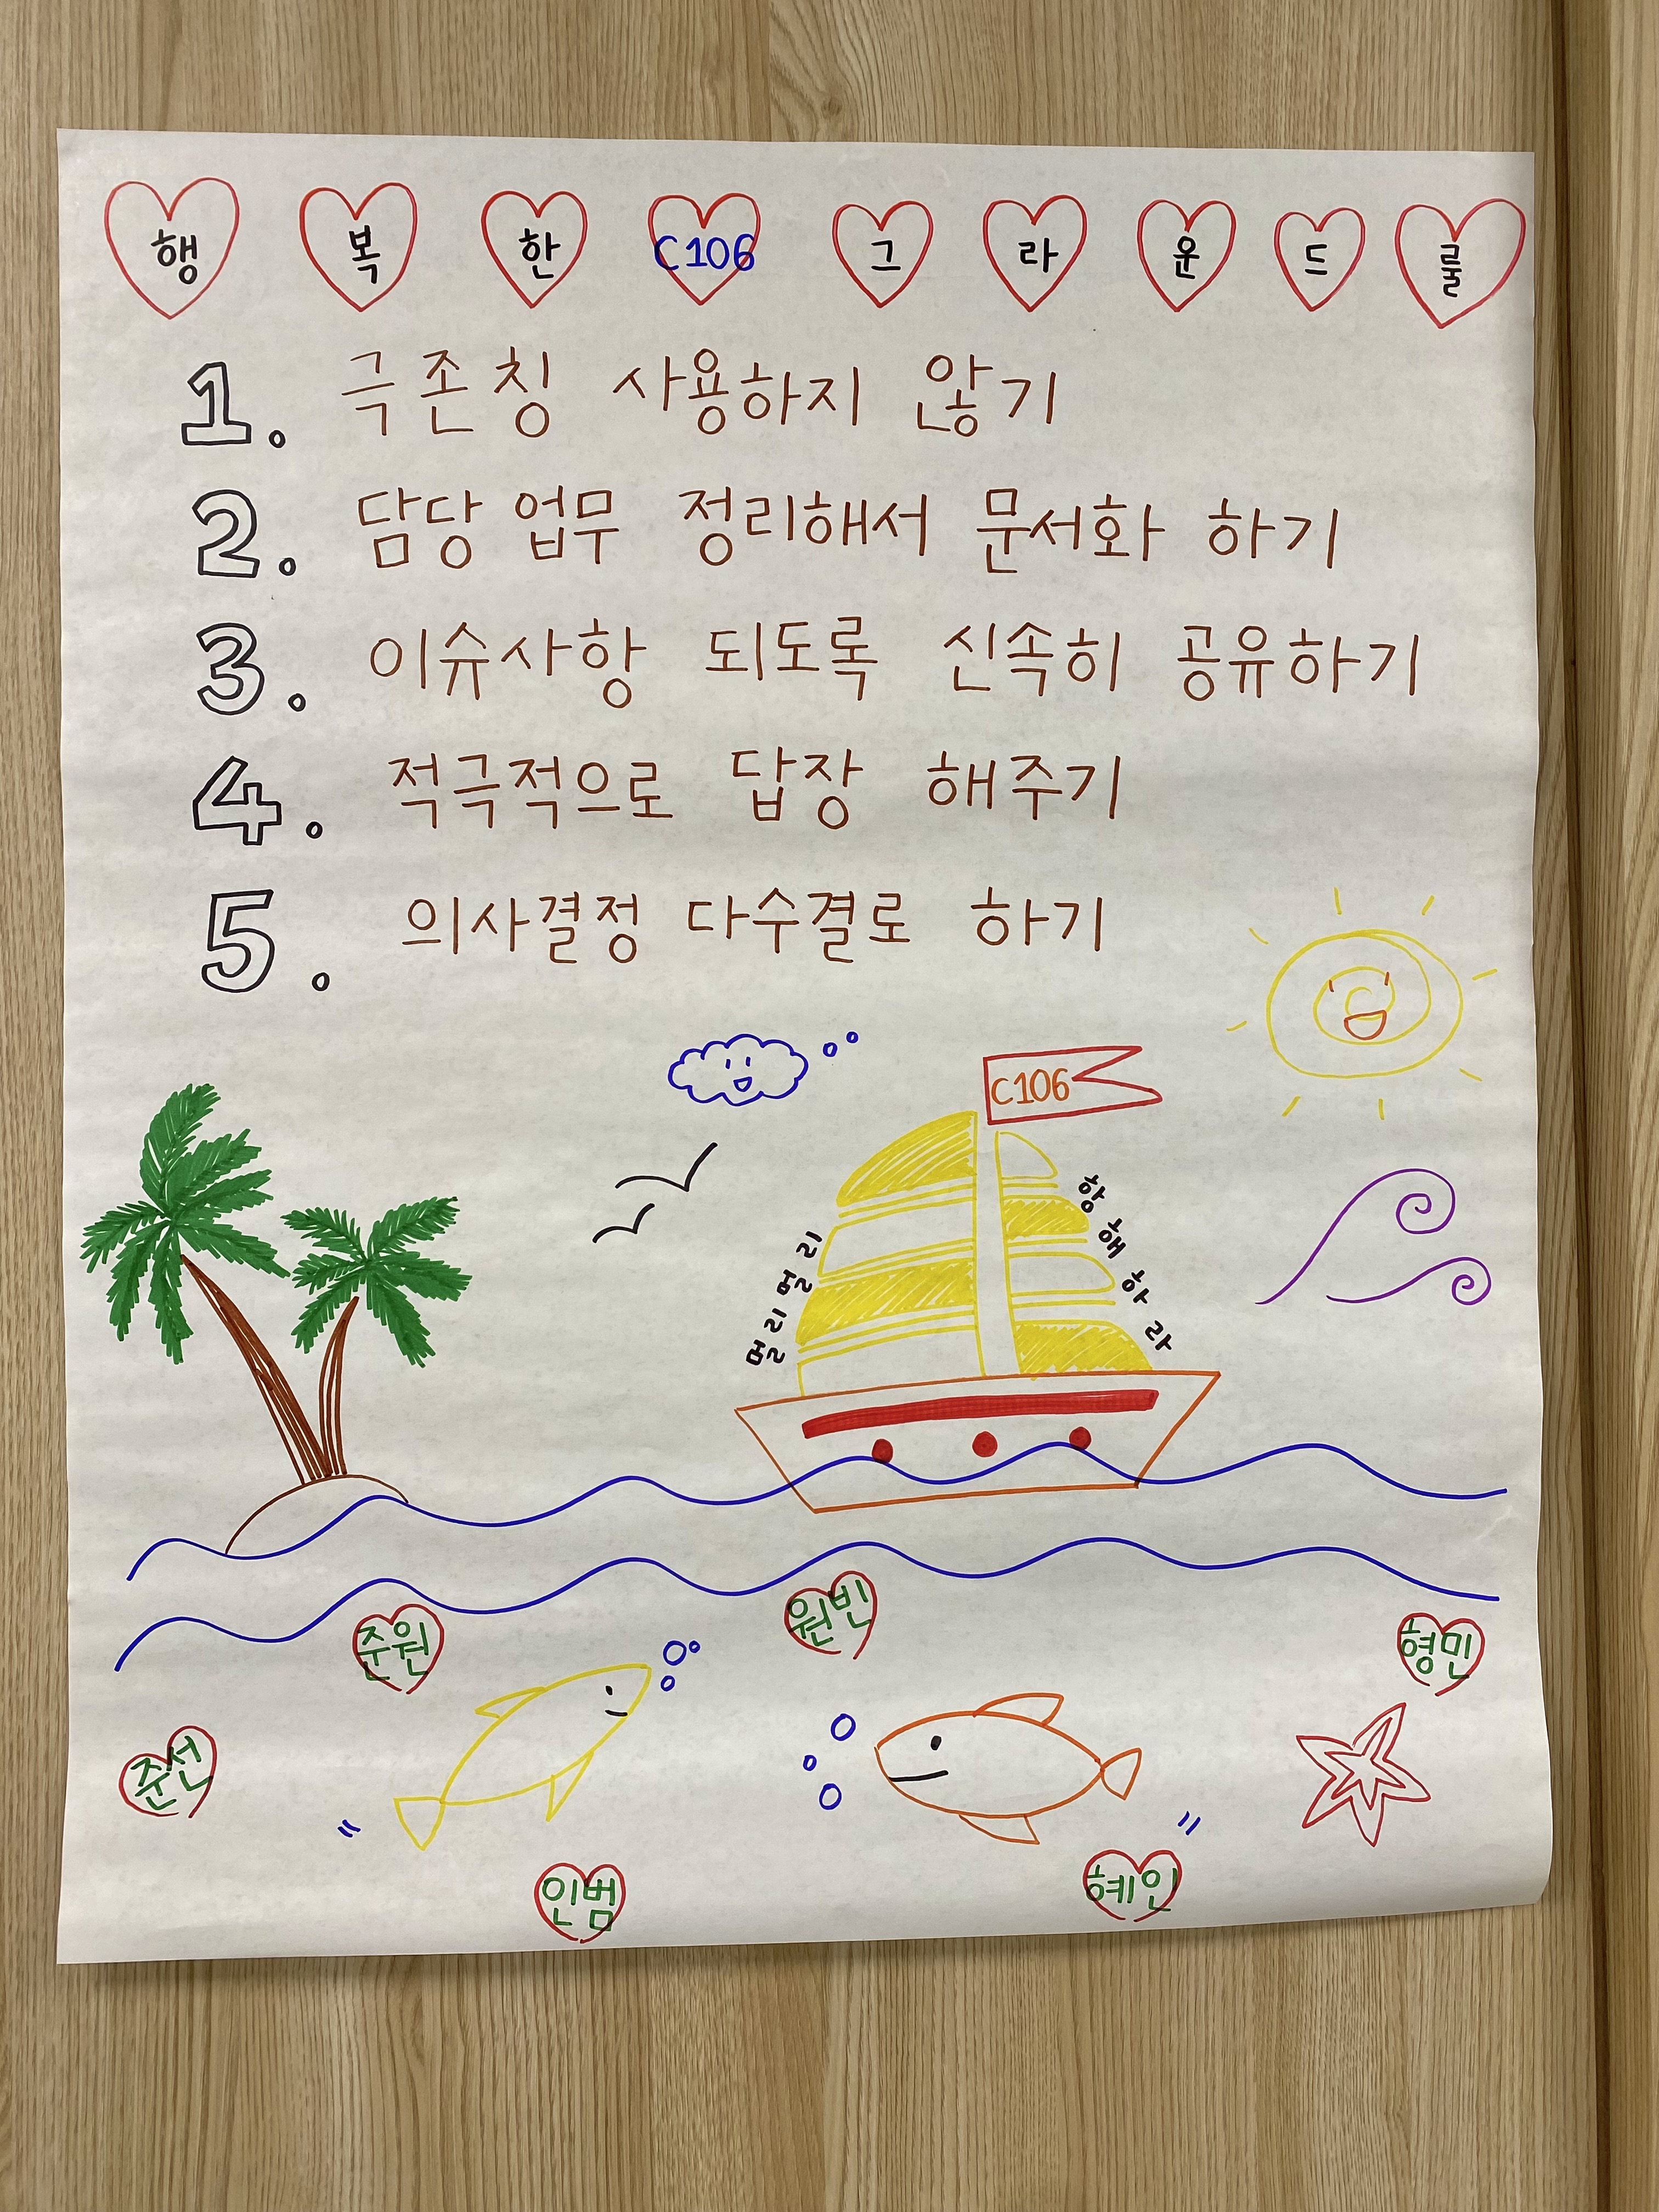 행복한 C106 그라운드룰
1. 극존칭 사용하지 않기
2. 담당 업무 정리해서 문서화 하기
3. 이슈사항 되도록 신속히 공유하기
4. 적극적으로 답장 해주기
5. 의사결정 다수결로 하기
C106
멀리멀리
항해하라
준원
원빈
형민
준서
인범
혜인